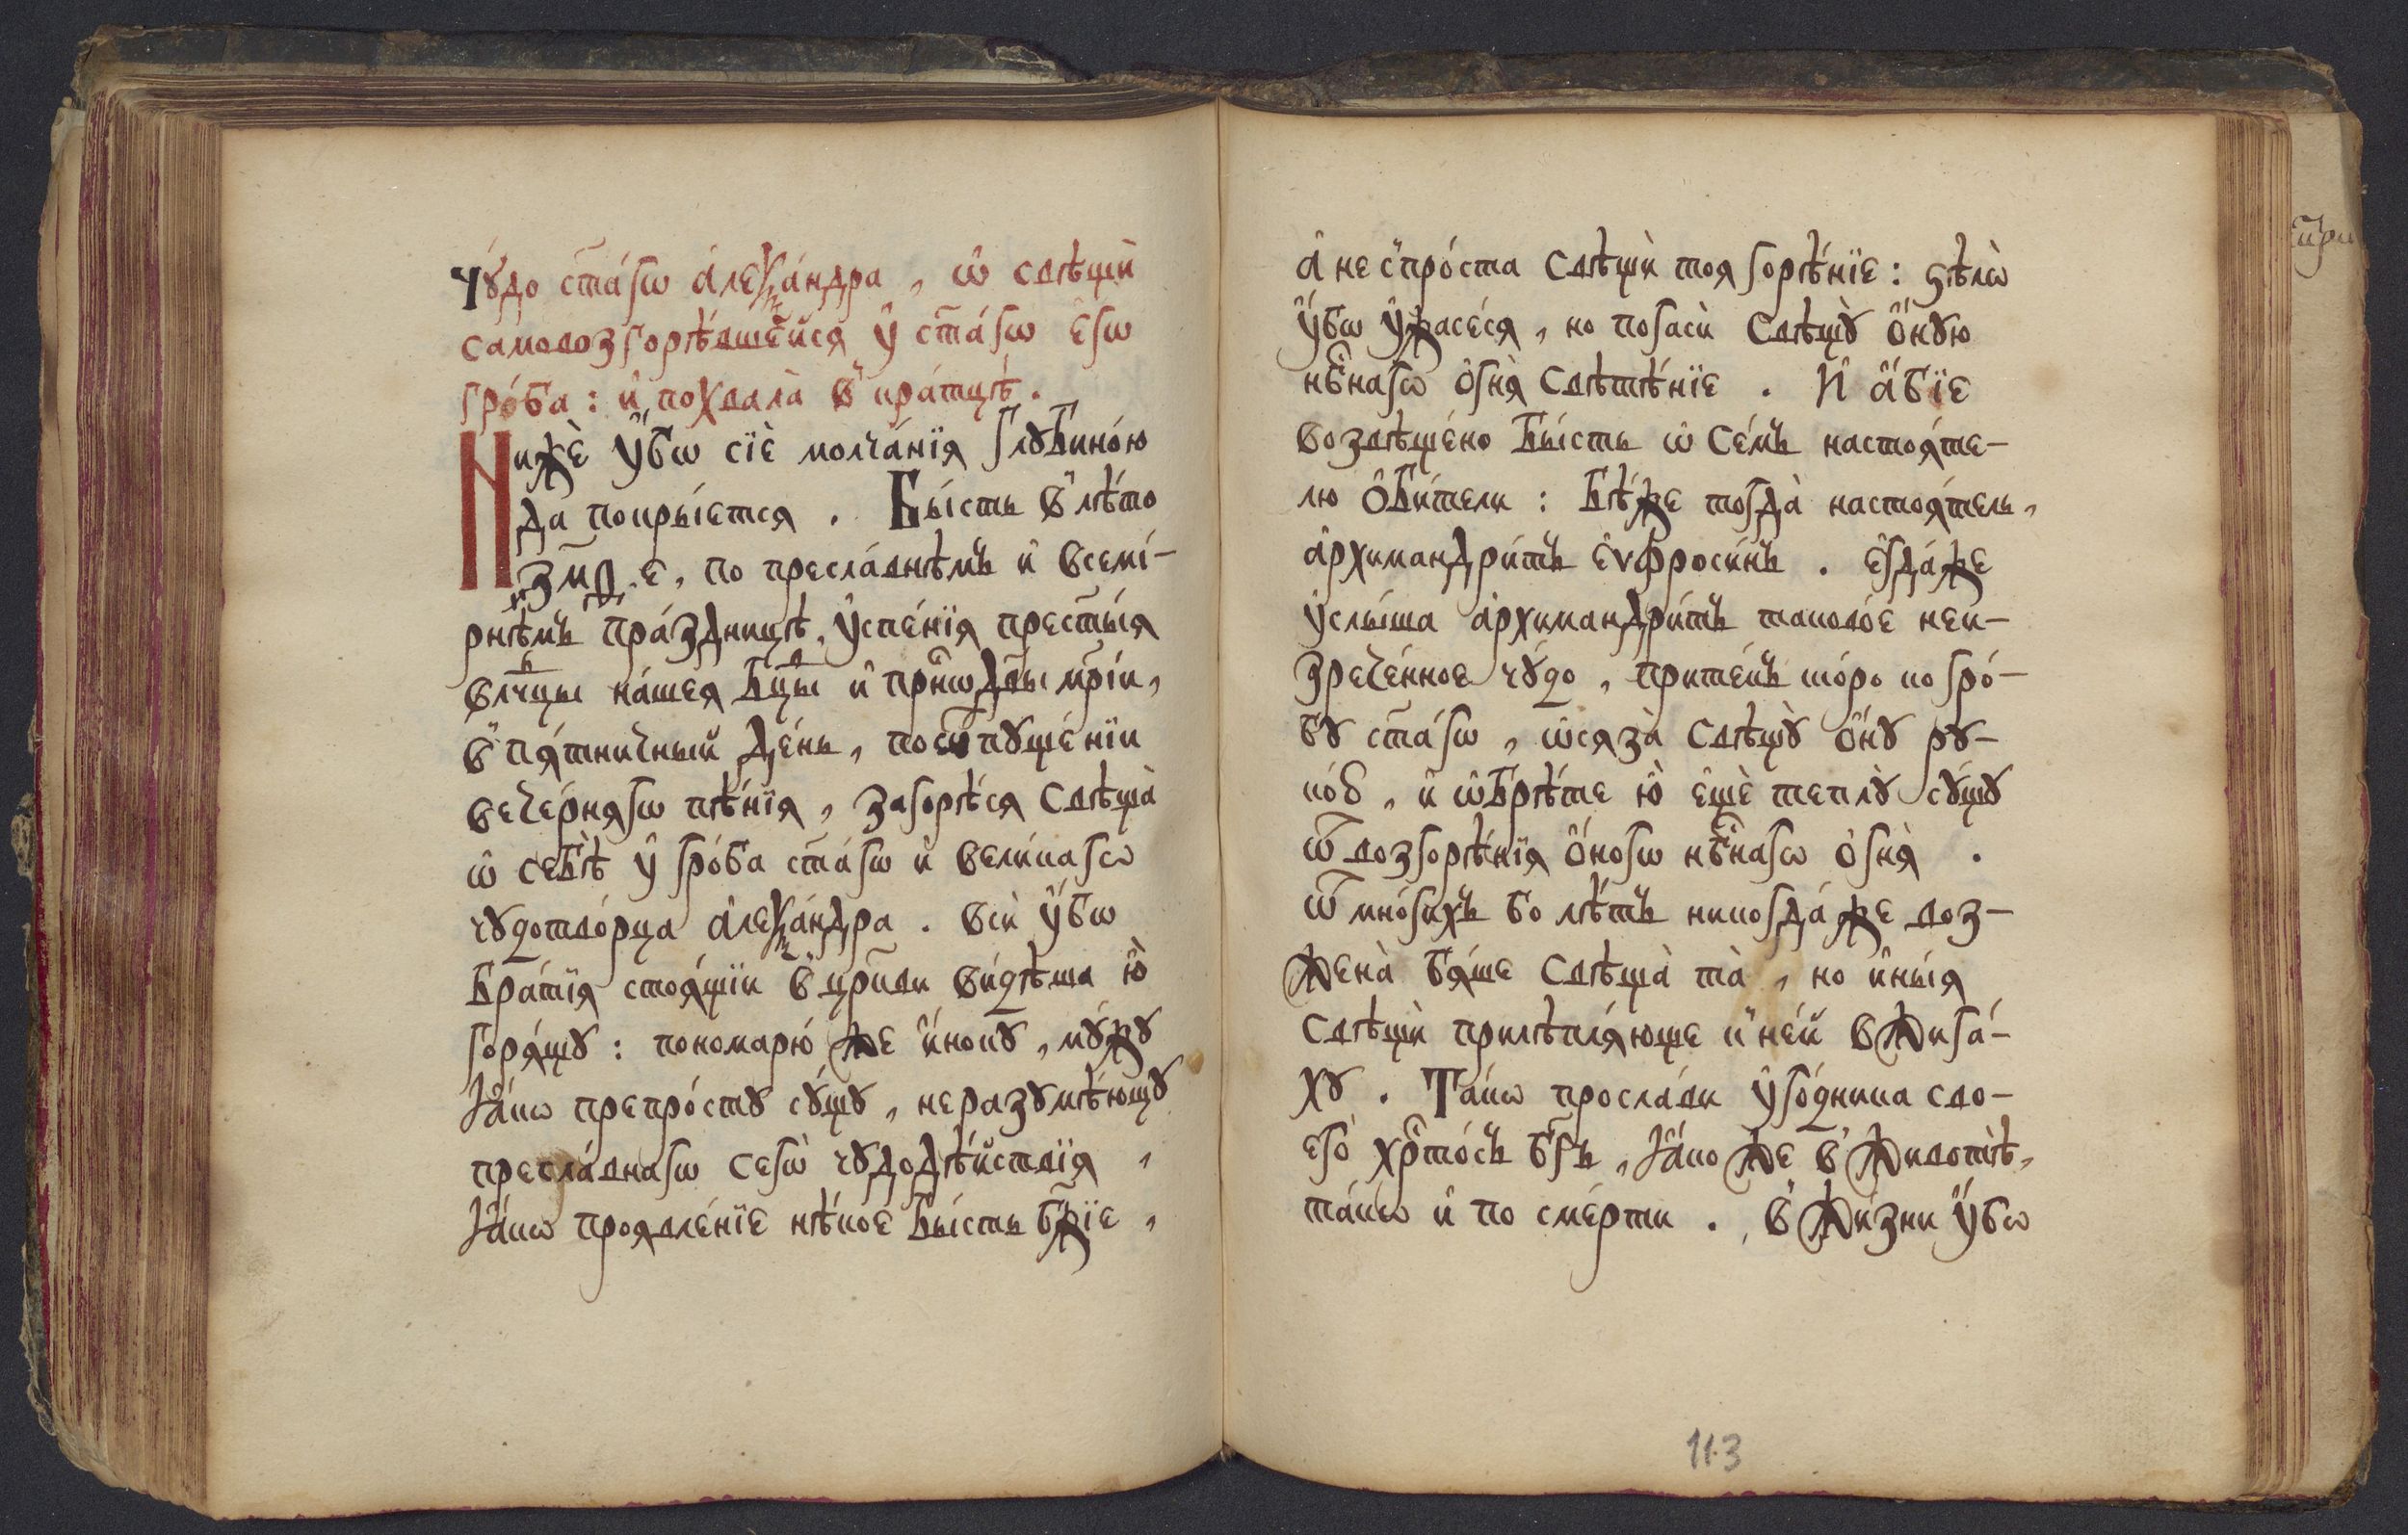 Чꙋ́до ст҃а́гѡ а҆леѯа́ндра, ѡ҆ свѣщѝ
самовозгорѣ́вшейся ᲂу҆ ст҃а́гѡ є҆гѡ
гро́ба: и҆ похвала̀ в̾кра́тцѣ.
Нижѐ ᲂу҆́бѡ сїѐ молча́нїя глꙋбино́ю
да покры́ется. Бы́сть в̾ лѣ́то
по пресла́внѣмъ и҆ всемі́-
рнѣмъ пра́здницѣ, ᲂу҆спе́нїя прест҃ы́я
влⷣчцы на́шея бц҃ы и҆ прⷭ҇нѡдв҃ы мр҃і́и,
в̾ пя́тничный де́нь, по ѿпꙋще́нїи
вече́рнягѡ пѣ́нїя, загорѣ́ся свѣща̀
ѡ҆ себѣ̀ ᲂу҆ гро́ба ст҃а́гѡ и҆ вели́кагѡ
чꙋдотво́рца а҆леѯа́ндра. Всѝ ᲂу҆́бѡ
бра́тїя стоя́щїи в̾ цр҃кви ви́дѣша ю҆̀
горя́щꙋ: пономарю́ же и҆́нокꙋ, мꙋ́жꙋ
ꙗ҆́кѡ препро́стꙋ сꙋ́щꙋ, неразꙋмѣ́ющꙋ
пресла́внагѡ сегѡ̀ чꙋдодѣ́йствїя,
ꙗ҆́кѡ проявле́нїе нѣ́кое бы́сть бж҃їе,
а҆ не с̾про́ста свѣщѝ тоя горѣ́нїе: ѕѣлѡ̀
ᲂу҆́бѡ ᲂу҆жасе́ся, но погасѝ свѣщꙋ̀ ѻ҆́нꙋю
нбⷭ҇нагѡ ѻ҆гня̀ свѣтѣ́нїе. И҆ а҆́бїе
возвѣще́но бы́сть ѡ҆ се́мъ настоя́те-
лю ѻ҆би́тели: бѣ́же тогда̀ настоя́тель,
а҆рхимандри́тъ є҆ѵфроси́нъ. є҆гда́же
ᲂу҆слы́ша а҆рхимандри́тъ таково́е неи-
зрече́нное чꙋ́до, прите́къ ско́ро ко гро́-
бꙋ ст҃а́гѡ, ѡ҆сяза̀ свѣщꙋ̀ ѻ҆́нꙋ рꙋ-
ко́ю, и҆ ѡ҆брѣ́те ю҆̀ є҆щѐ теплꙋ̀ сꙋ́щꙋ
ѿ возгорѣ́нїя ѻ҆́ногѡ нбⷭ҇нагѡ ѻ҆гня̀.
Ѿ мно́гихъ бо лѣ́тъ никогда́же воз-
жена̀ бя́ше свѣща̀ та̀, но и҆ны́я
свѣщѝ прилѣпля́юще к̾ не́й вжига́-
хꙋ. Та́кѡ просла́ви ᲂу҆го́дника сво-
его̀ хрⷭ҇то́съ бг҃ъ, ꙗ҆́коже в̾ животѣ̀,
та́кѡ и҆ по сме́рти. в̾ жи́зни ᲂу҆́бѡ
113